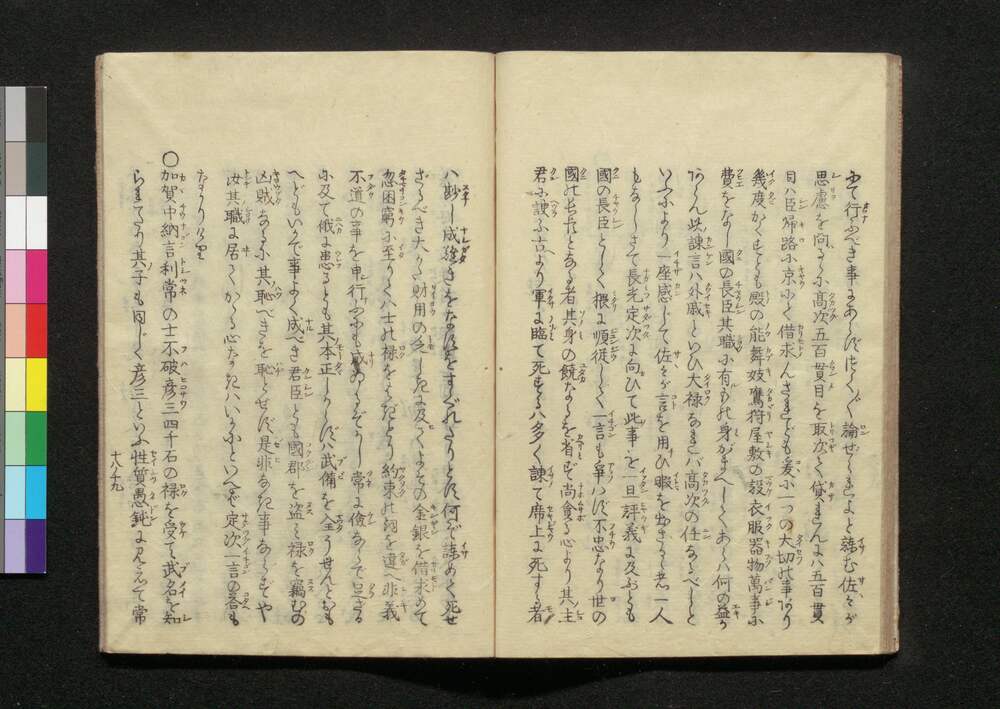 にて行ふべき事にあらばつく〲論ぜられよと諫む佐々が
思慮を問るゝに高次五百貫目を取次ぐ貸まゐんに八五百貫
目ハ臣帰路に京にて借求んされども爰に一つの大切の事あり
幾度かくすとも殿の能舞妓鷹狩屋敷の設衣服器物萬事に
費をなし国の長臣其職に有もの身がまへしてあらハ何の益か
あらん此諫言ハ外戚といひ大禄なれバ高次の任なるべしと
いふにより一座感じて佐々が言を用ひ暇を出さるゝ者一人
もなしさて長光定次に向ひて此事を一旦評義に及ぶとも
国の長臣として猥に順従して一言も争ハず不忠なり世の
国の長たる者其身の饒なるを省ず尚貪る心より其主
君に諛ふ古より軍に臨て死するハ多く諫て席上に死する者
ハ尠し成難きをなすをすぐれたりとす何ぞ諫めて死せ
ざるべき大かた財用の乏しきに及てよその金銀を借求めて
忽困窮に至りてハ士の禄をもたをり約束の期を違へ非義
不道の事を申行ふにも威のくぞりし常に倹ならで足ざる
に及て俄に患るとも其本正しからずバ武備を全うせんとおも
へどもいかで事よく成べき君臣とも国郡を盗み禄を竊むの
凶賊なるに其恥べきを恥とせず是非なき事ならずや
汝其職に居てかゝる心なきハいかにといへど定次一言の答も
なかりけり
○加賀中納言利常の士不破彦三四千石の禄を受て武名を知
られたり其子も同じく彦三といふ性質愚鈍に見えて常
十八ノ十九